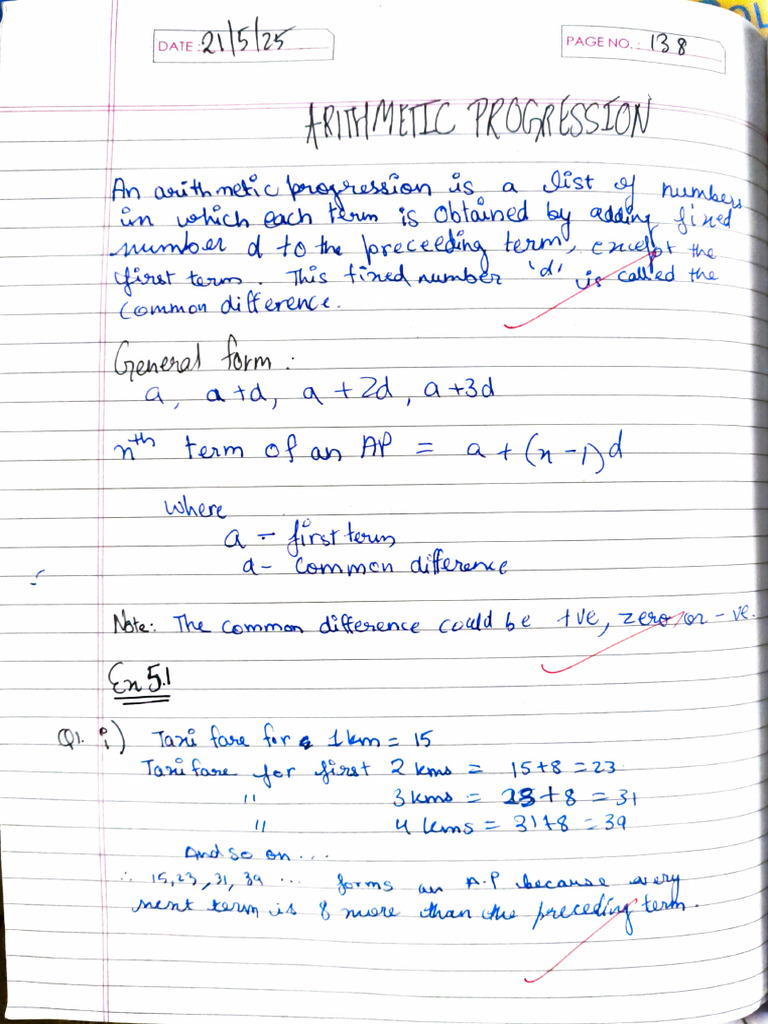 DATE: 21/5/25
PAGE NO.: 138
ARITHMETIC PROGRESSION
An arithmetic progression is a list of numbers
in which each term is obtained by adding fixed
number d to the preceeding term, except the
first term. This fixed number 'd' is called the
common difference.
General form:
a, a+d, a + 2d, a+3d
nth term of an AP = a + (n-1)d
where
a - first term
d - common difference
Note: The common difference could be +ve, zero or -ve.
Ex 5.1
Q1. i) Taxi fare for 1 km = 15
Taxi fare for first 2 kms = 15+8 = 23
" 3 kms = 23 + 8 = 31
" 4 kms = 31+8 = 39
And so on...
∴ 15, 23, 31, 39 ... forms an A.P because every
next term is 8 more than the preceding term.